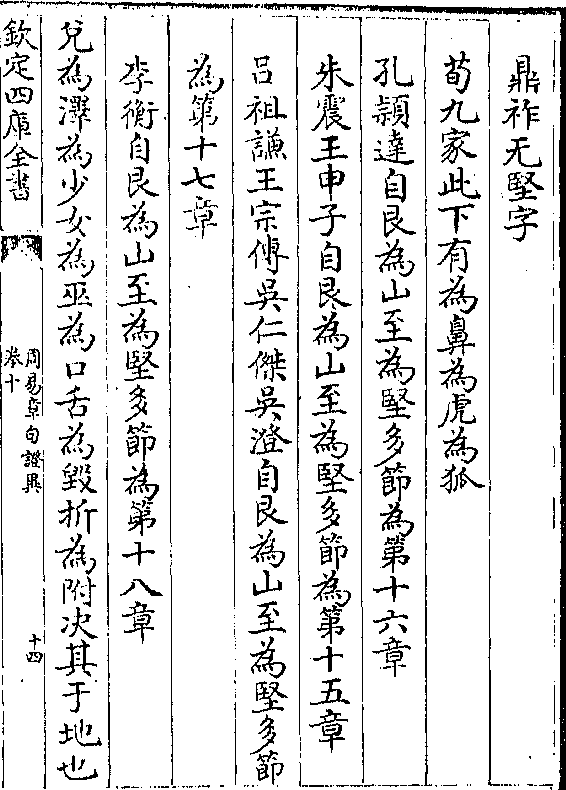 鼎祚无堅字
荀九家此下有為鼻為虎為狐
孔穎達自艮為山至為堅多節為第十六章
朱震王申子自艮為山至為堅多節為第十五章
吕祖謙王宗傳吳仁傑吳澄自艮為山至為堅多節
為第十七章
李衡自艮為山至為堅多節為第十八章
兌為澤為少女為巫為口舌為毀折為附决其于地也
欽定四庫全書
周易章句證異
卷十
十四